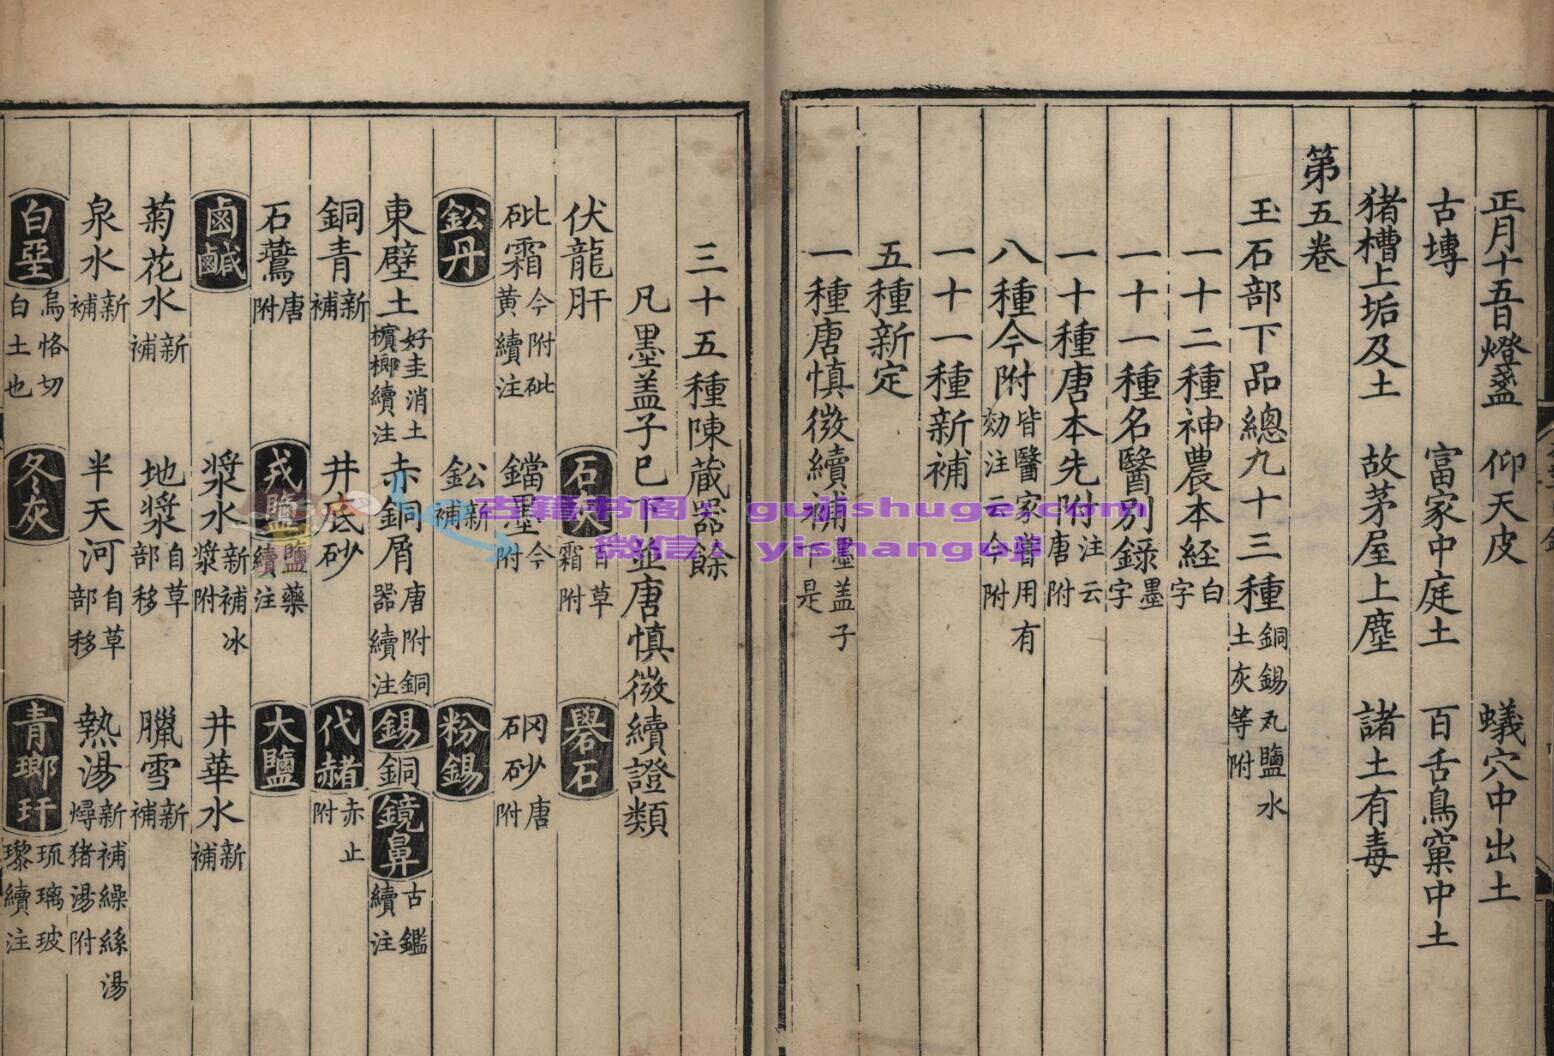 正月十五日燈盞 仰天皮 蟻穴中出土
古塼 富家中庭土 百舌鳥窠中土
猪槽上垢及土 故茅屋上塵 諸土有毒
第五卷
玉石部下品總九十三種 銅錫丸鹽水土灰等附
一十二種神農本経 白字
一十一種名醫別錄 墨字
一十種唐本先附 注云唐附
八種今附 皆醫家嘗用有効注云今附
一十一種新補
五種新定
一種唐慎微續補 墨盖子下是
三十五種陳蔵器餘
凡墨盖子已下並唐慎微續證類
伏龍肝 石灰 百草霜附 礜石
砒霜 今附砒黄續注 鐺墨 今附 硇砂 唐附
鈆丹 鈆 新補 粉錫
東壁土 好圭消土檳榔續注 赤銅屑 唐附銅器續注 錫銅鏡鼻 古鑑續注
銅青 新補 井底砂 代赭 赤土附
石鷰 唐附 戎鹽 鹽藥續注 大鹽
鹵鹹 漿水 新補冰漿附 井華水 新補
菊花水 新補 地漿 自草部移 臘雪 新補
泉水 新補 半天河 自草部移 熱湯 新補繰絲湯燖猪湯附
白堊 烏恪切白土也 冬灰 青瑯玕 琉璃玻瓈續注
古籍书阁：gujishuge.com
微信：yishanguji